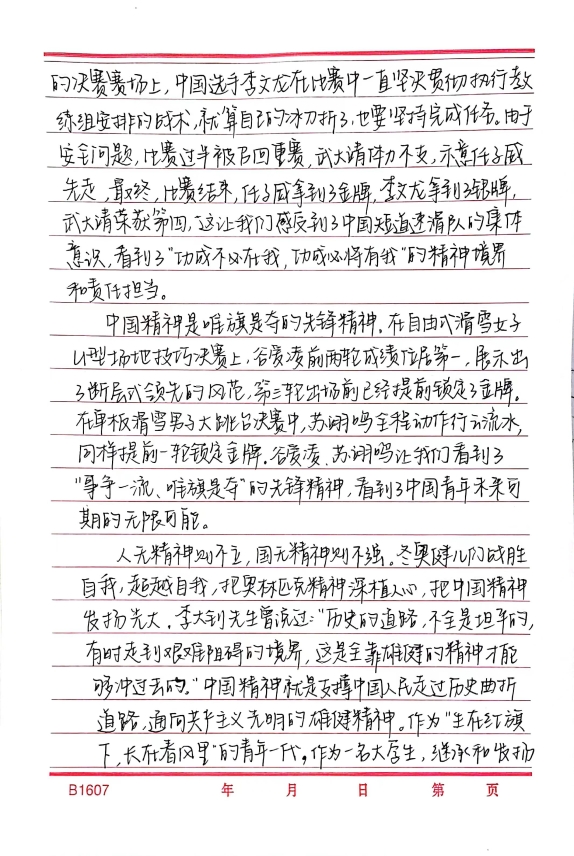 的决赛赛场上，中国选手李文龙在比赛中一直坚决贯彻执行教
练组安排的战术，就算自己的冰刀折了，也要坚持完成任务。由于
安全问题，比赛过半被召回重赛，武大靖体力不支，示意任子威
先走，最终，比赛结束，任子威拿到了金牌，李文龙拿到了银牌，
武大靖荣获第四，这让我们感受到了中国短道速滑队的集体
意识，看到了“功成不必在我，功成必将有我”的精神境界
和责任担当。
中国精神是唯旗是夺的先锋精神。在自由式滑雪女子
U型场地技巧决赛上，谷爱凌前两轮成绩位居第一，展示出
了断层式领先的风范，第三轮出场前已经提前锁定了金牌。
在单板滑雪男子大跳台决赛中，苏翊鸣全程动作行云流水，
同样提前一轮锁定金牌。谷爱凌、苏翊鸣让我们看到了
“勇争一流、唯旗是夺”的先锋精神，看到了中国青年未来可
期的无限可能。
人无精神则不立，国无精神则不强。冬奥健儿们战胜
自我，超越自我，把奥林匹克精神深植人心，把中国精神
发扬光大。李大钊先生曾说过：“历史的道路，不全是坦平的，
有时走到艰难阻碍的境界，这是全靠雄健的精神才能
够冲过去的。”中国精神就是支撑中国人民走过历史曲折
道路，通向共产主义光明的雄健精神。作为“生在红旗
下，长在春风里”的青年一代，作为一名大学生，继承和发扬
B1607 年 月 日 第 页